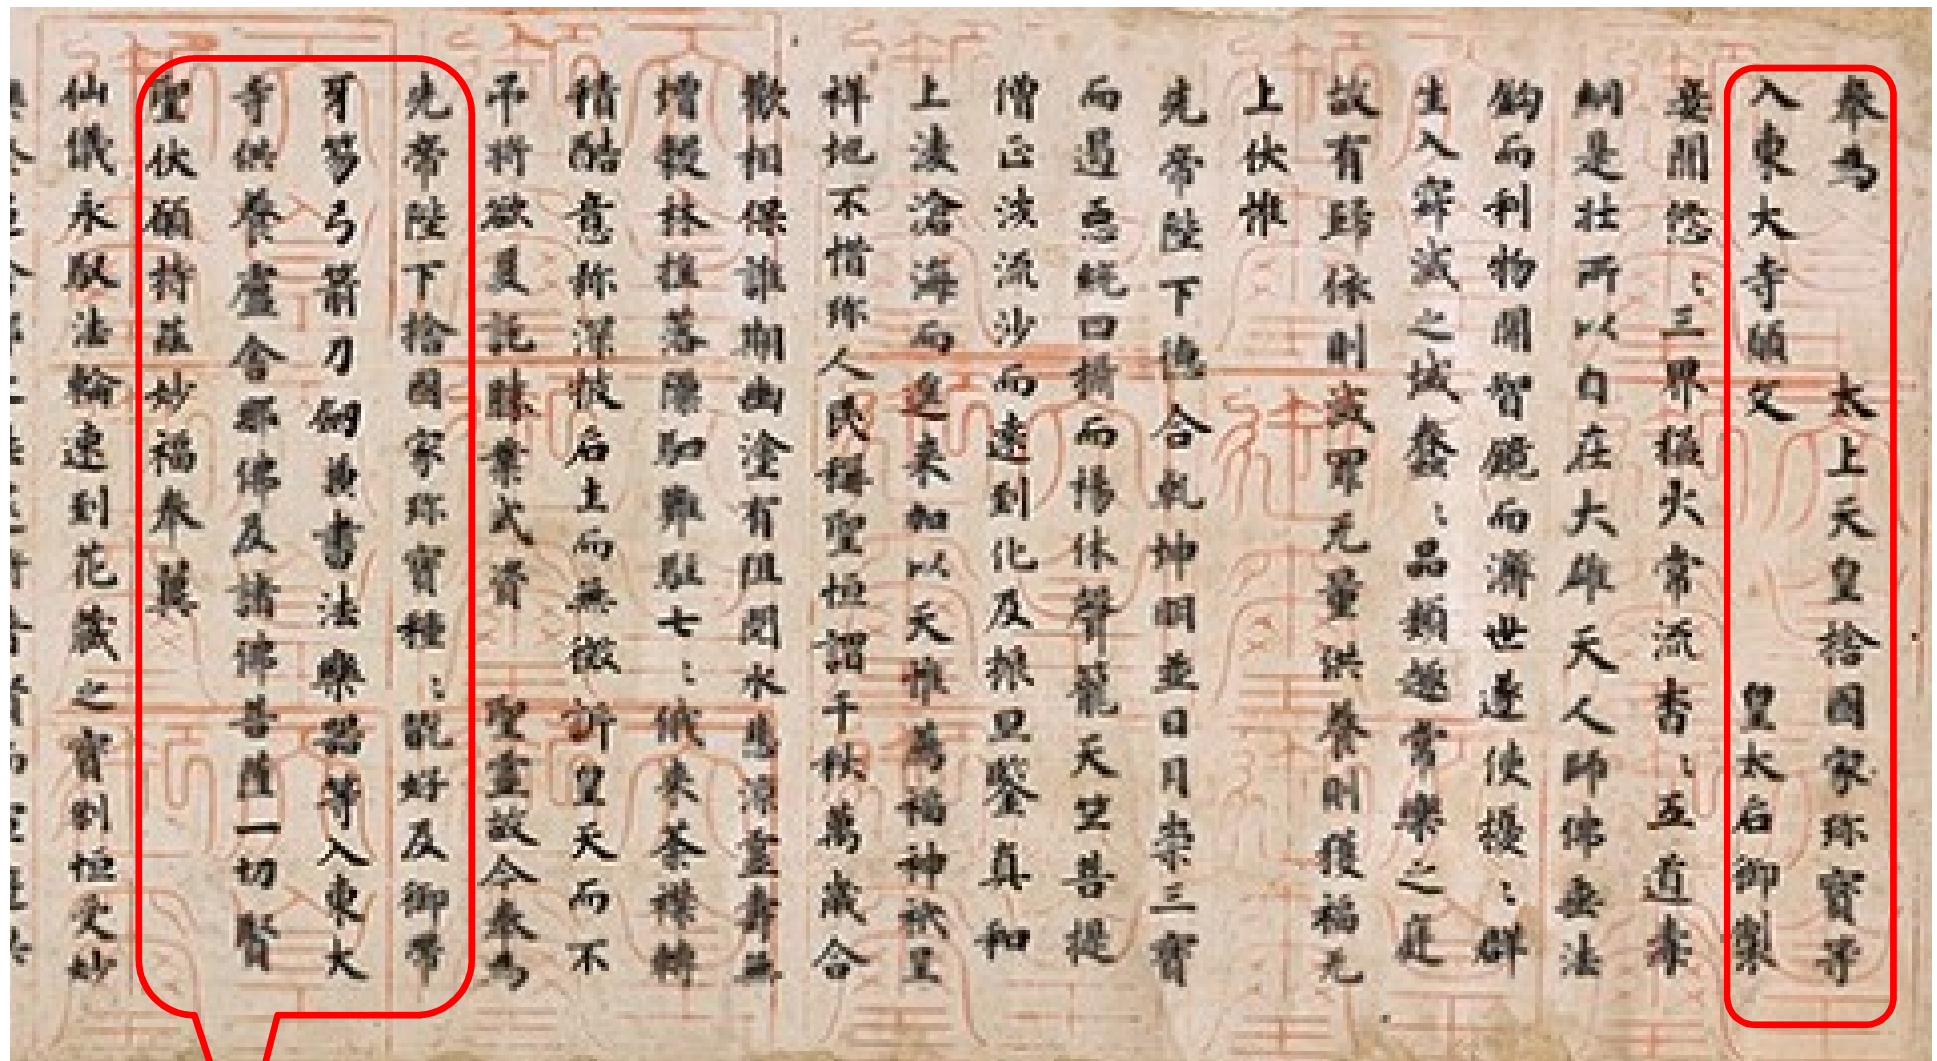 奉為　太上天皇捨國家珎寶等
入東大寺願文　皇太后御製
妾聞悠々三界猛火常流杳々五道毒
網是壮所以自在大雄天人師佛垂法
鈎而利物開智鏡而濟世遂使擾々群
生入寂滅之域蠢々品類趣常樂之庭
故有歸依則滅罪无量供養則獲福无
上伏惟
先帝陛下德合乾坤明並日月崇三寶
而遏惡統四攝而揚休聲籠天竺菩提
僧正渉流沙而遠到化及振旦鑒真和
上凌滄海而遙来加以天惟薦福神祇呈
祥地不惜珎人民稱聖恒謂千秋萬歲合
歡相保誰期幽塗有阻閲水悲凉靈壽無
増穀林揺落隟駟難駐七々俄来荼襟轉
積酷意弥深披后土而無徴訴皇天而不
弔将欲爰託勝業式資　聖靈故今奉為
先帝陛下捨國家珎寶種々翫好及御帶
牙笏弓箭刀劔兼書法樂器等入東大
寺供養盧舎那佛及諸佛菩薩一切賢
聖伏願持茲妙福奉翼
仙儀永馭法輪速到花蔵之寶刹恒受妙